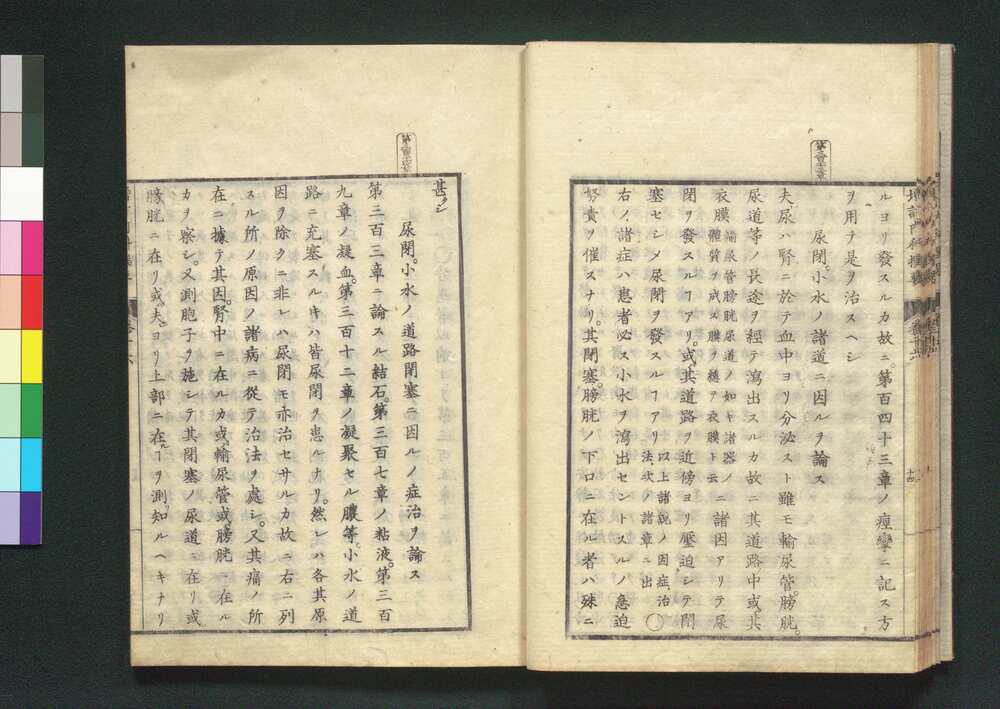 ルヨリ發スルカ故ニ。第百四十三章ノ痙攣ニ記ス方
ヲ用テ是ヲ治スヘシ
尿閉。小水ノ諸道ニ因ルヲ論ス
夫、尿ハ腎ニ於テ血中ヨリ分泌スト雖モ輸尿管。膀胱。
尿道等ノ長途ヲ經テ瀉出スルカ故ニ其道路中或、其
衣膜 輸尿管膀胱尿道ノ如キ諸器ノ
體質ヲ成ス膜ヲ總テ衣膜ト云 ニ諸因アリテ尿
閉ヲ發スルヿアリ。或、其道路ヲ近傍ヨリ壓迫シテ閉
塞セシメ尿閉ヲ發スルヿアリ 以上諸説ノ因症、治
法、次ノ諸章ニ出 ○
右ノ諸症ハ患者必ス小水ヲ瀉出セントスルノ急迫
努責ヲ催スナリ。其閉塞。膀胱ノ下口ニ在ル者ハ殊ニ
甚タシ
尿閉。小水ノ道路閉塞ニ因ルノ症治ヲ論ス
第三百三章ニ論スル結石。第三百七章ノ粘液。第三百
九章ノ凝血。第三百十二章ノ凝聚セル膿等。小水ノ道
路ニ充塞スルキハ皆尿閉ヲ患ルナリ。然レハ各其原
因ヲ除クニ非レハ尿閉モ亦治セサルカ故ニ右ニ列
スル所ノ原因ノ諸病ニ從テ治法ヲ處シ。又其痛ノ所
在ニ據テ其因。腎中ニ在ルカ或、輸尿管或、膀胱ニ在ル
カヲ察シ。又測胞子ヲ施シテ其閉塞ノ尿道ニ在リ或
膀胱ニ在リ或、夫ヨリ上部ニ在ルヿヲ測知ルヘキナリ